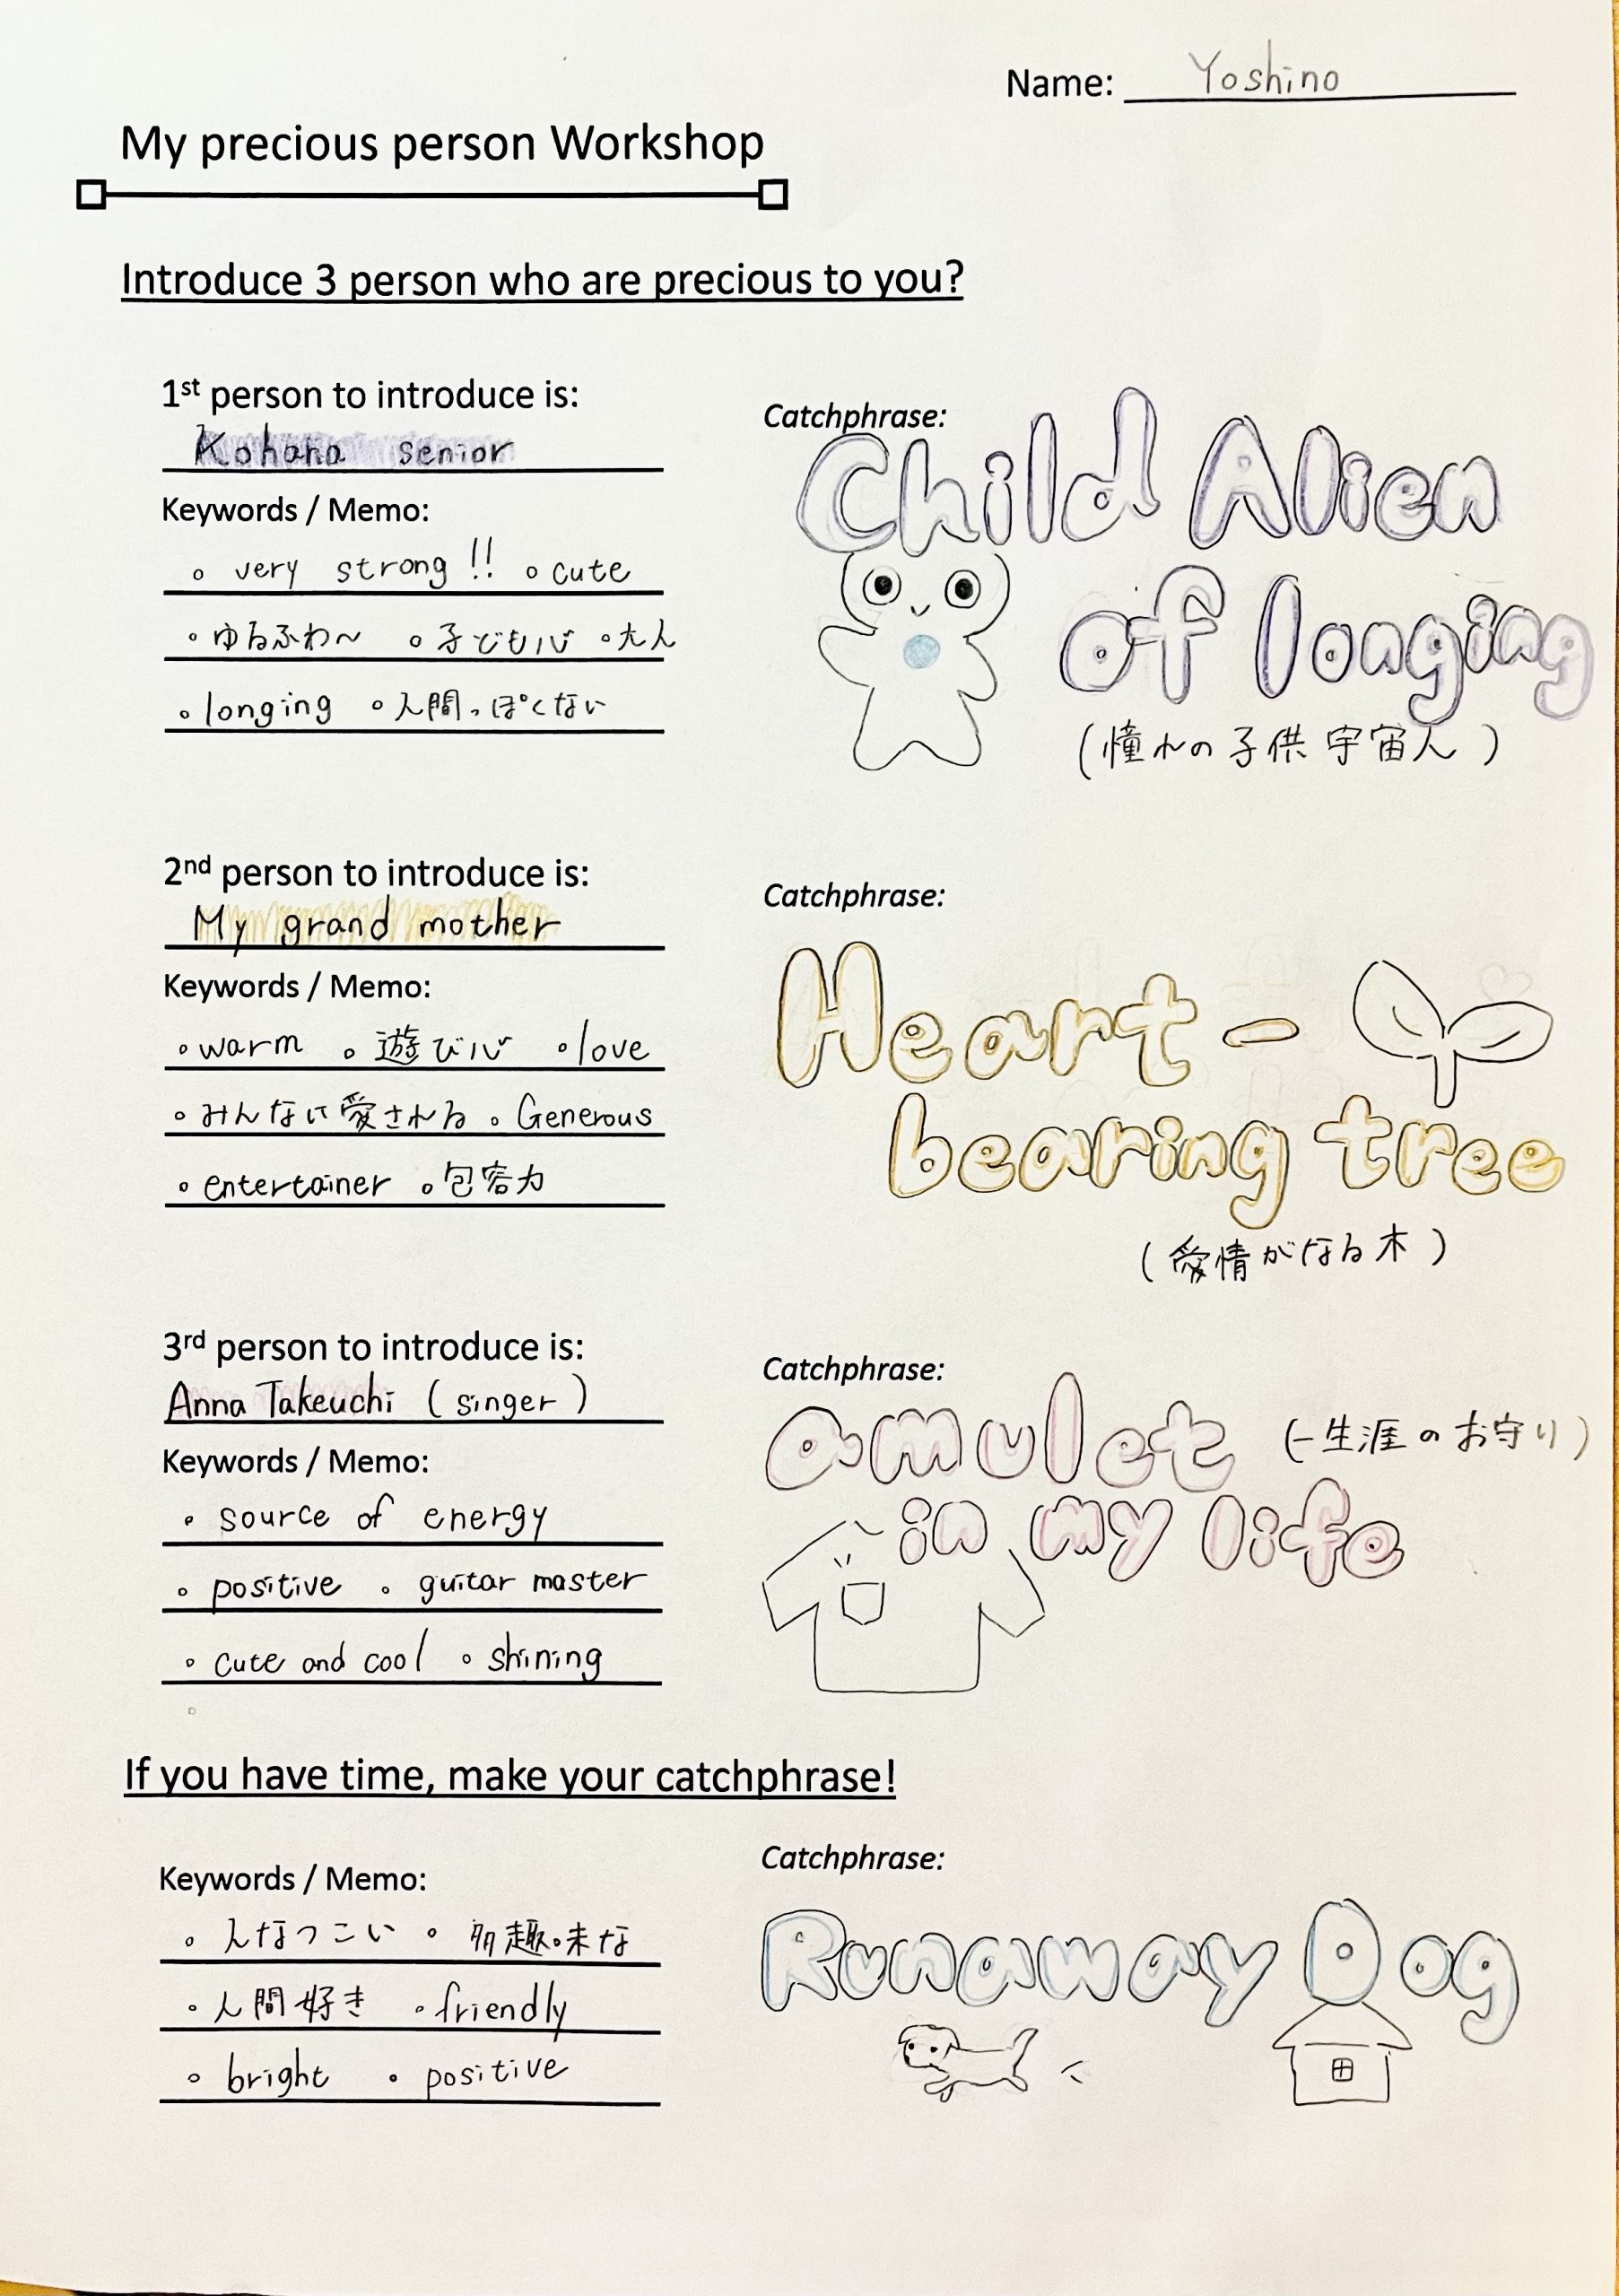 Name: Yoshino
My precious person Workshop
Introduce 3 person who are precious to you?
1st person to introduce is:
Kohana senior
Keywords / Memo:
。very strong !! 。cute
。ゆるふわ〜 。子ども心 。大人
。longing 。人間っぽくない
Catchphrase:
Child Alien
of longing
(憧れの子供宇宙人)
2nd person to introduce is:
My grand mother
Keywords / Memo:
。warm 。遊び心 。love
。みんなに愛される 。Generous
。entertainer 。包容力
Catchphrase:
Heart-
bearing tree
(愛情がなる木)
3rd person to introduce is:
Anna Takeuchi (singer)
Keywords / Memo:
。source of energy
。positive 。guitar master
。cute and cool 。shining
Catchphrase:
amulet (一生涯のお守り)
in my life
If you have time, make your catchphrase!
Keywords / Memo:
。人なつこい 。多趣味な
。人間好き 。friendly
。bright 。positive
Catchphrase:
Runaway Dog